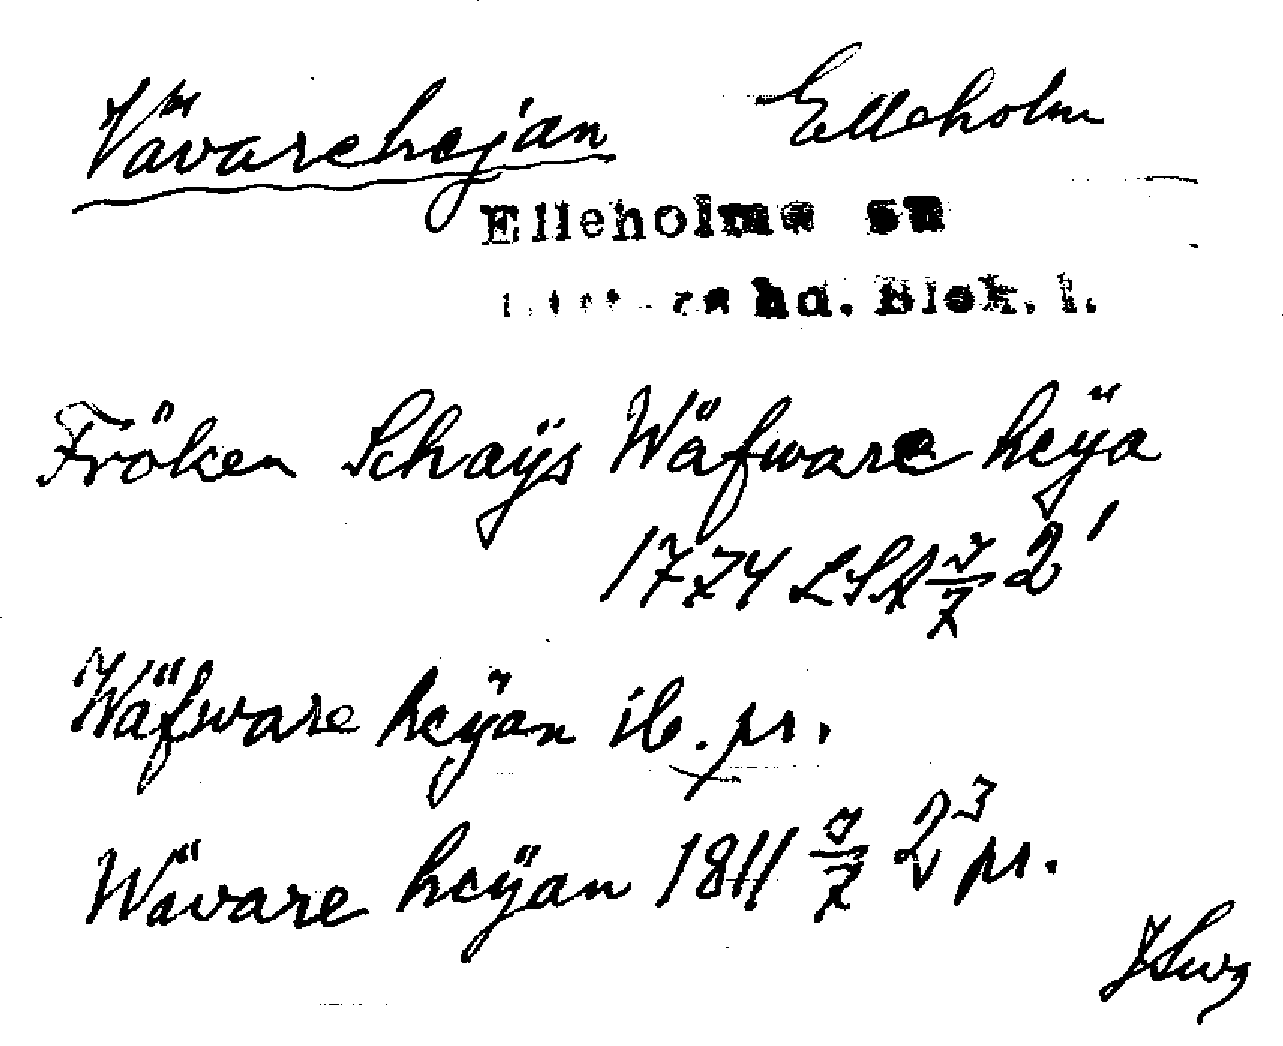 Vävarehejan Elleholm
Elleholms sn
hd. Blek. l.
Fröken Schaÿs Wäfware heÿa
1774 LSA 7/7 2¹
Wäfware heÿan ib. pr.
Wävare heÿan 1811 7/7 2³ pr.